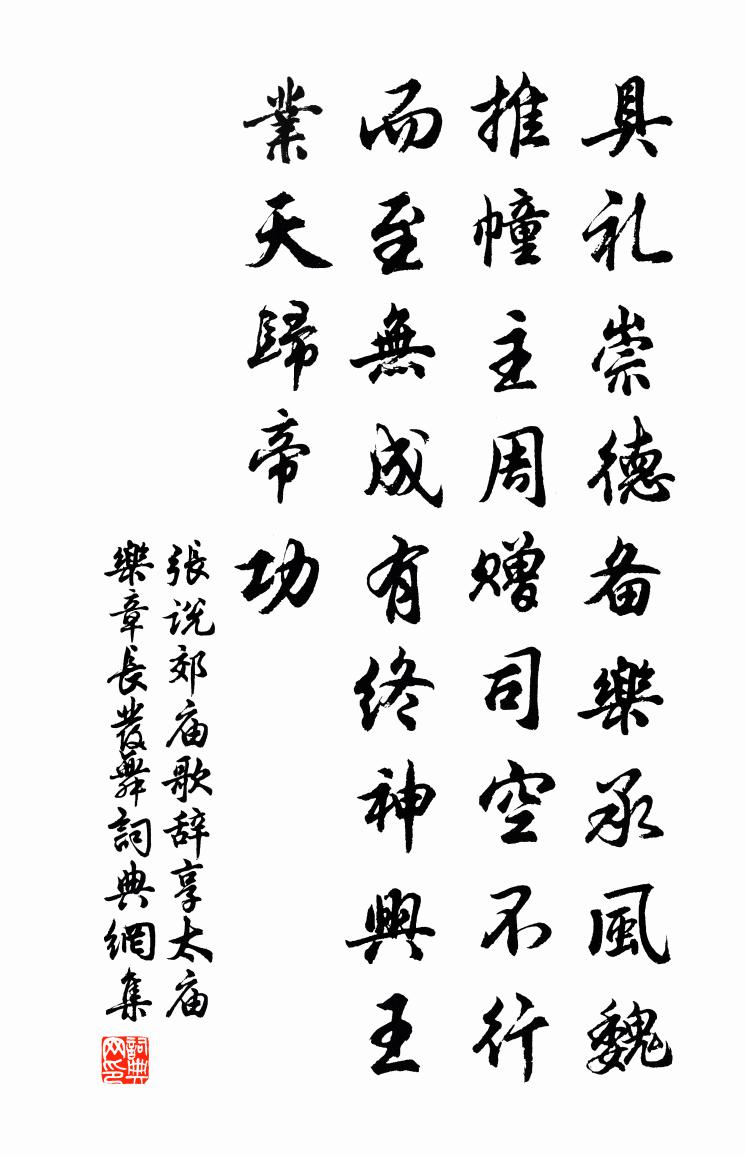 具礼崇德备樂承風魏
推幢主周赠司空不行
而至無成有终神興王
業天歸帝功
張说郊庙歌辞享太庙
樂章長發舞詞典網集
詞典网印